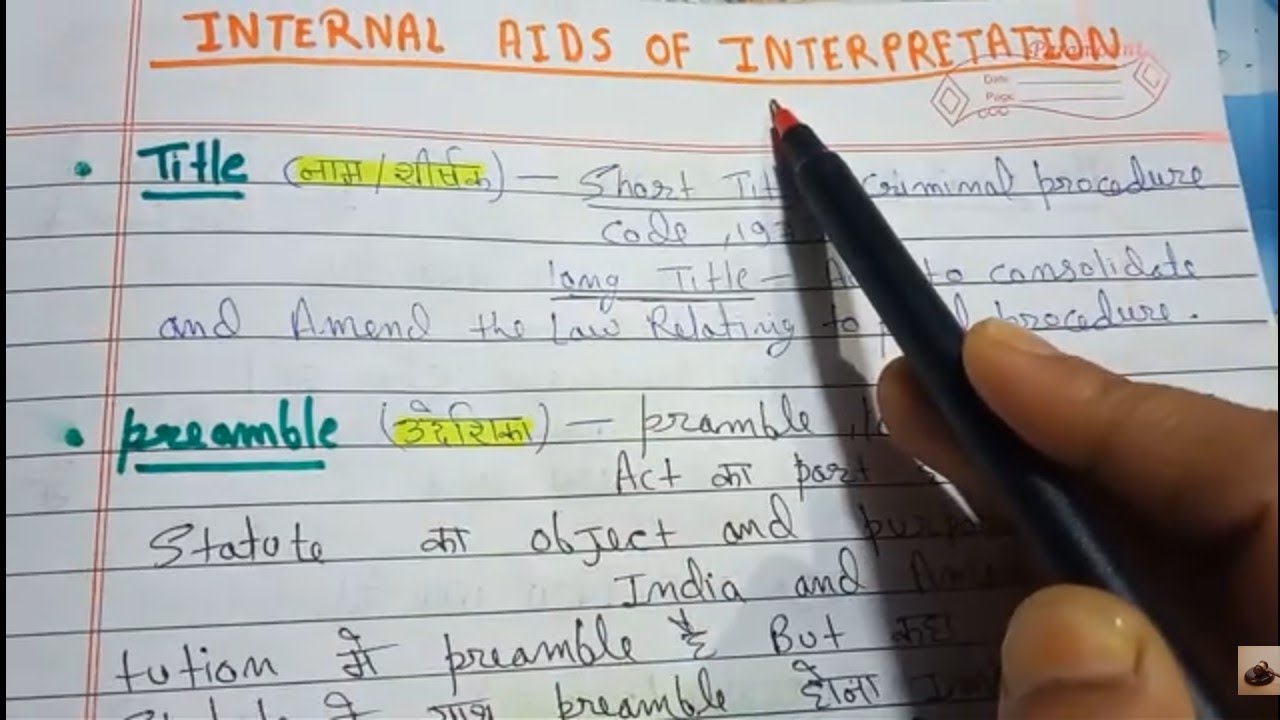 INTERNAL AIDS OF INTERPRETATION
Date
Page
• Title (नाम/शीर्षक) — Short criminal procedure
code,
long Title — to consolidate
and Amend the Law Relating to procedure.
• preamble (उद्देशिका) — pramble,
Act का part
Statute का object and
India and
tution में preamble है But कुछ
preamble होना